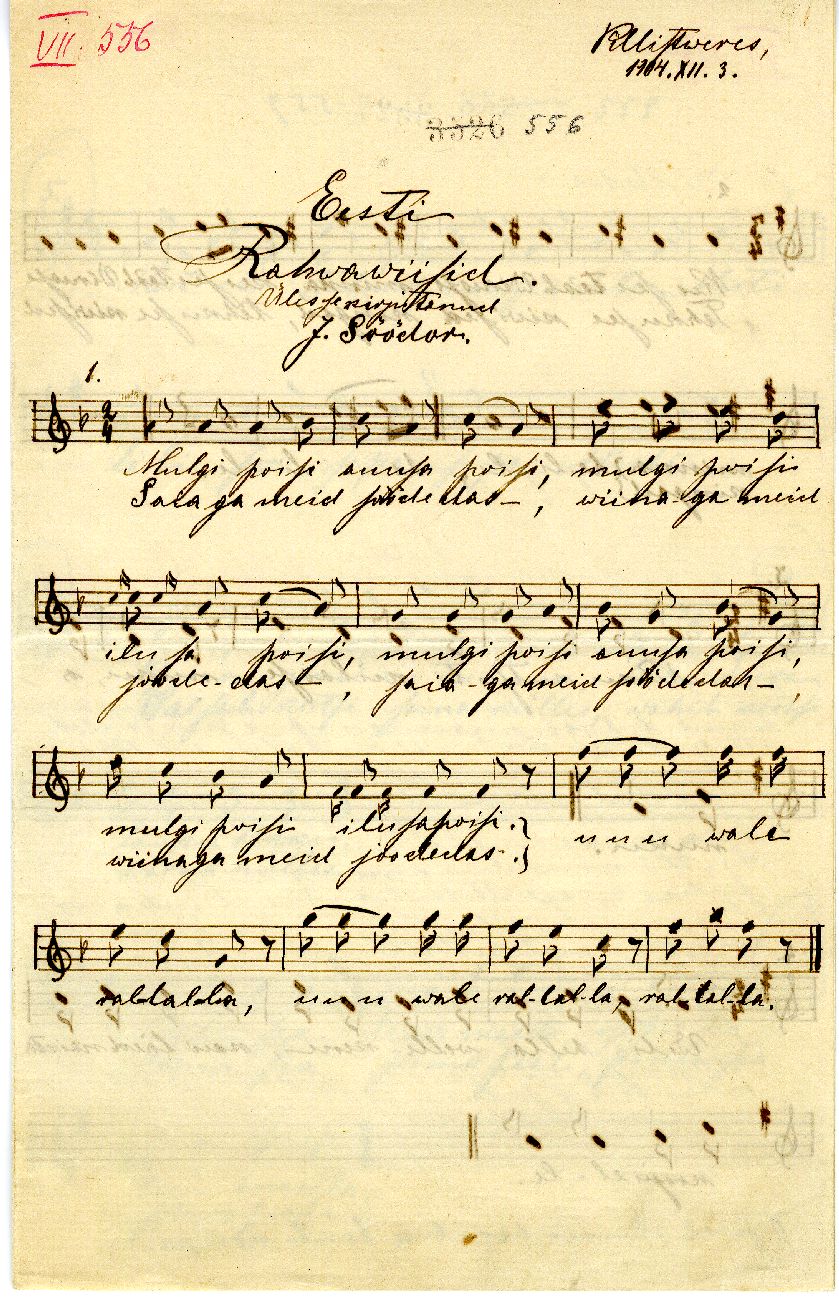 VII. 556
Pillistweres,
1904. XII. 3.
3526 556
Eesti
Rahwawiisid.
Ülesse kirjutanud
J. Söödor.
1.
Mulgi poisi auusa poisi, mulgi poisi
Saia ga meid söödedas –, wiina-ga meid
ilusa poisi, mulgi poisi auusa poisi,
joode-das –, saia-ga meid söödedas –,
mulgi poisi ilusa poisi.
wiinaga meid joodedas.
u u u wale
ral-lal-la, u u u wale ral-lal-la, ral-lal-la.